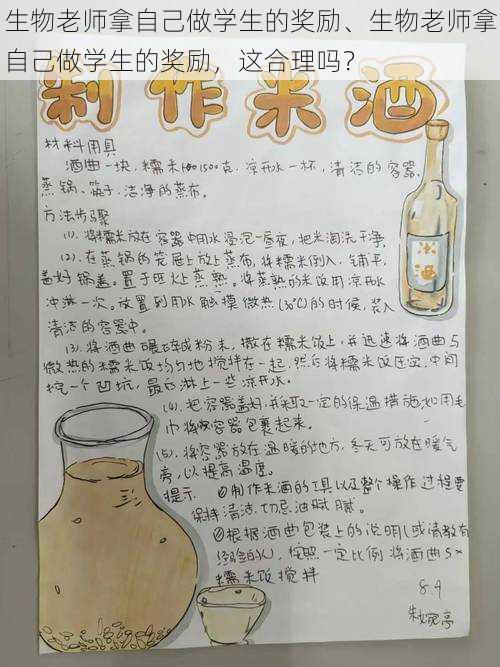 生物老师拿自己做学生的奖励、生物老师拿
自己做学生的奖励，这合理吗？
制作米酒
材料用具
酒曲一块，糯米1500克，凉开水一杯，清洁的容器，
蒸锅、筷子、洁净的蒸布。
方法步骤
(1)、将糯米放在容器中用水浸泡一昼夜，把米淘洗干净。
(2)、在蒸锅的笼屉上放上蒸布，将糯米倒入，铺平，
盖好锅盖。置于旺火上蒸熟。将蒸熟的米饭用凉开水
冲淋一次。放置到用水触摸微热(30℃)的时候，装入
清洁的容器中。
(3)、将酒曲碾碎成粉末，撒在糯米饭上，并迅速将酒曲与
微热的糯米饭均匀地搅拌在一起，然后将糯米饭压实，中间
挖一个凹坑，最后淋上一些凉开水。
(4)、把容器盖好，并采取一定的保温措施，如用毛
巾将容器包裹起来。
(5)、将容器放在温暖的地方，冬天可放在暖气
旁，以提高温度。
提示 ①制作米酒的工具以及整个操作过程要
保持清洁，切忌油腻。
②根据酒曲包装上的说明(或请教有
经验的人)，按照一定比例将酒曲与
糯米饭搅拌
8.4
米酒